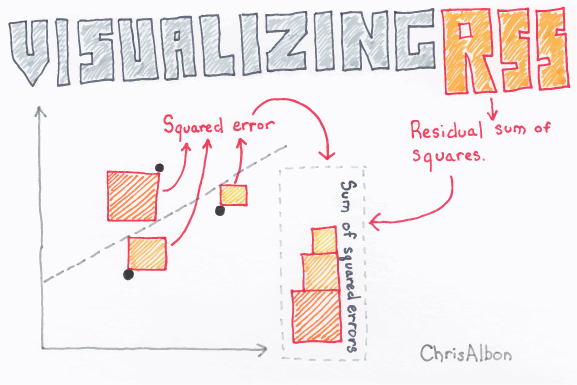 VISUALIZING RSS
Squared error
Residual sum of
squares.
Sum of squared errors
ChrisAlbon